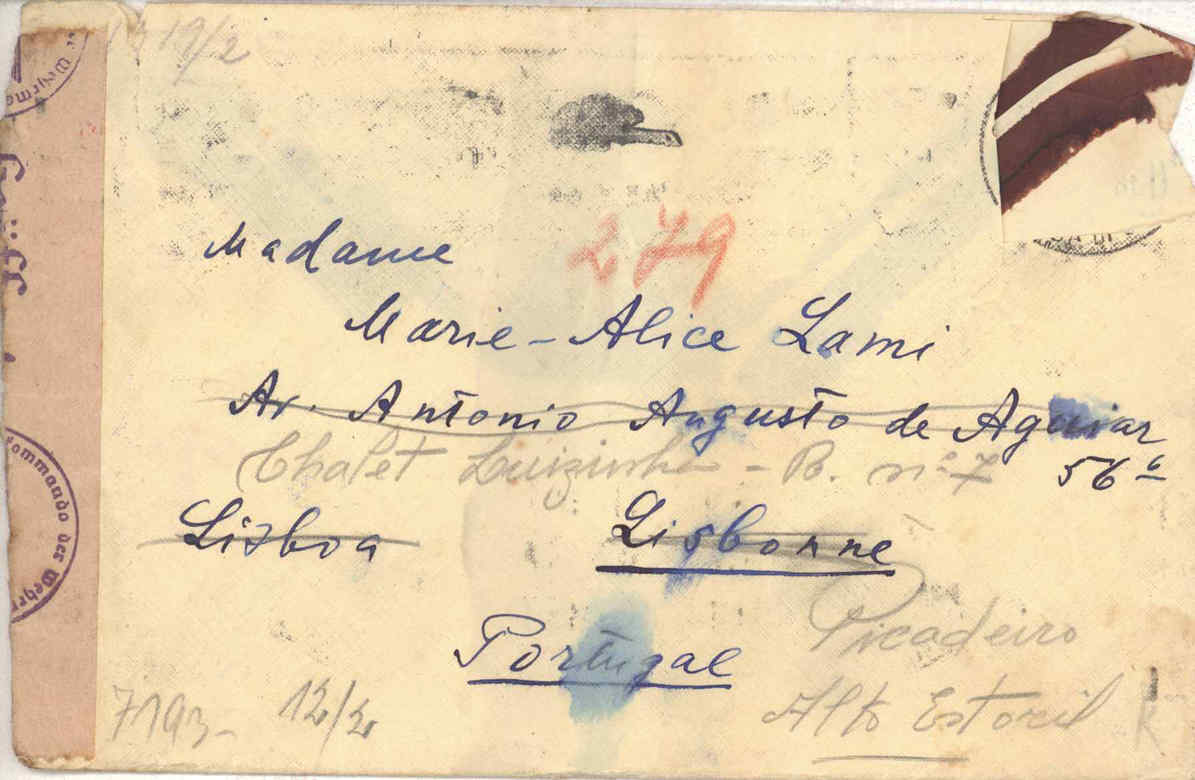 19/2
Madame
279
Marie-Alice Lami
Av. Antonio Augusto de Aguiar
Chalet Luizinha - R. nº 7
56
Lisboa
Lisbonne
Picadeiro
Portugal
Alto Estoril
12/2
ommando des Wehr